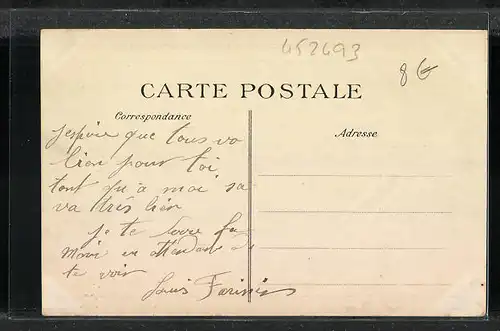 452493
8€
CARTE POSTALE
Correspondance
Adresse
j'espère que tous va
bien pour toi
tant qu'a moi sa
va très bien
je te serre la
main en attendant de
te voir
Louis